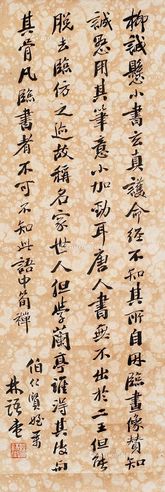 柳誠懸小書玄真護命經不知其所自因臨畫像贊知
誠懸用其筆意小加勁耳唐人書無不出於二王但能
脫去臨仿之迹故稱名家世人但學蘭亭誰得其皮與
其骨凡臨書者不可不知此語中荀禪
伯仁賢姪
林